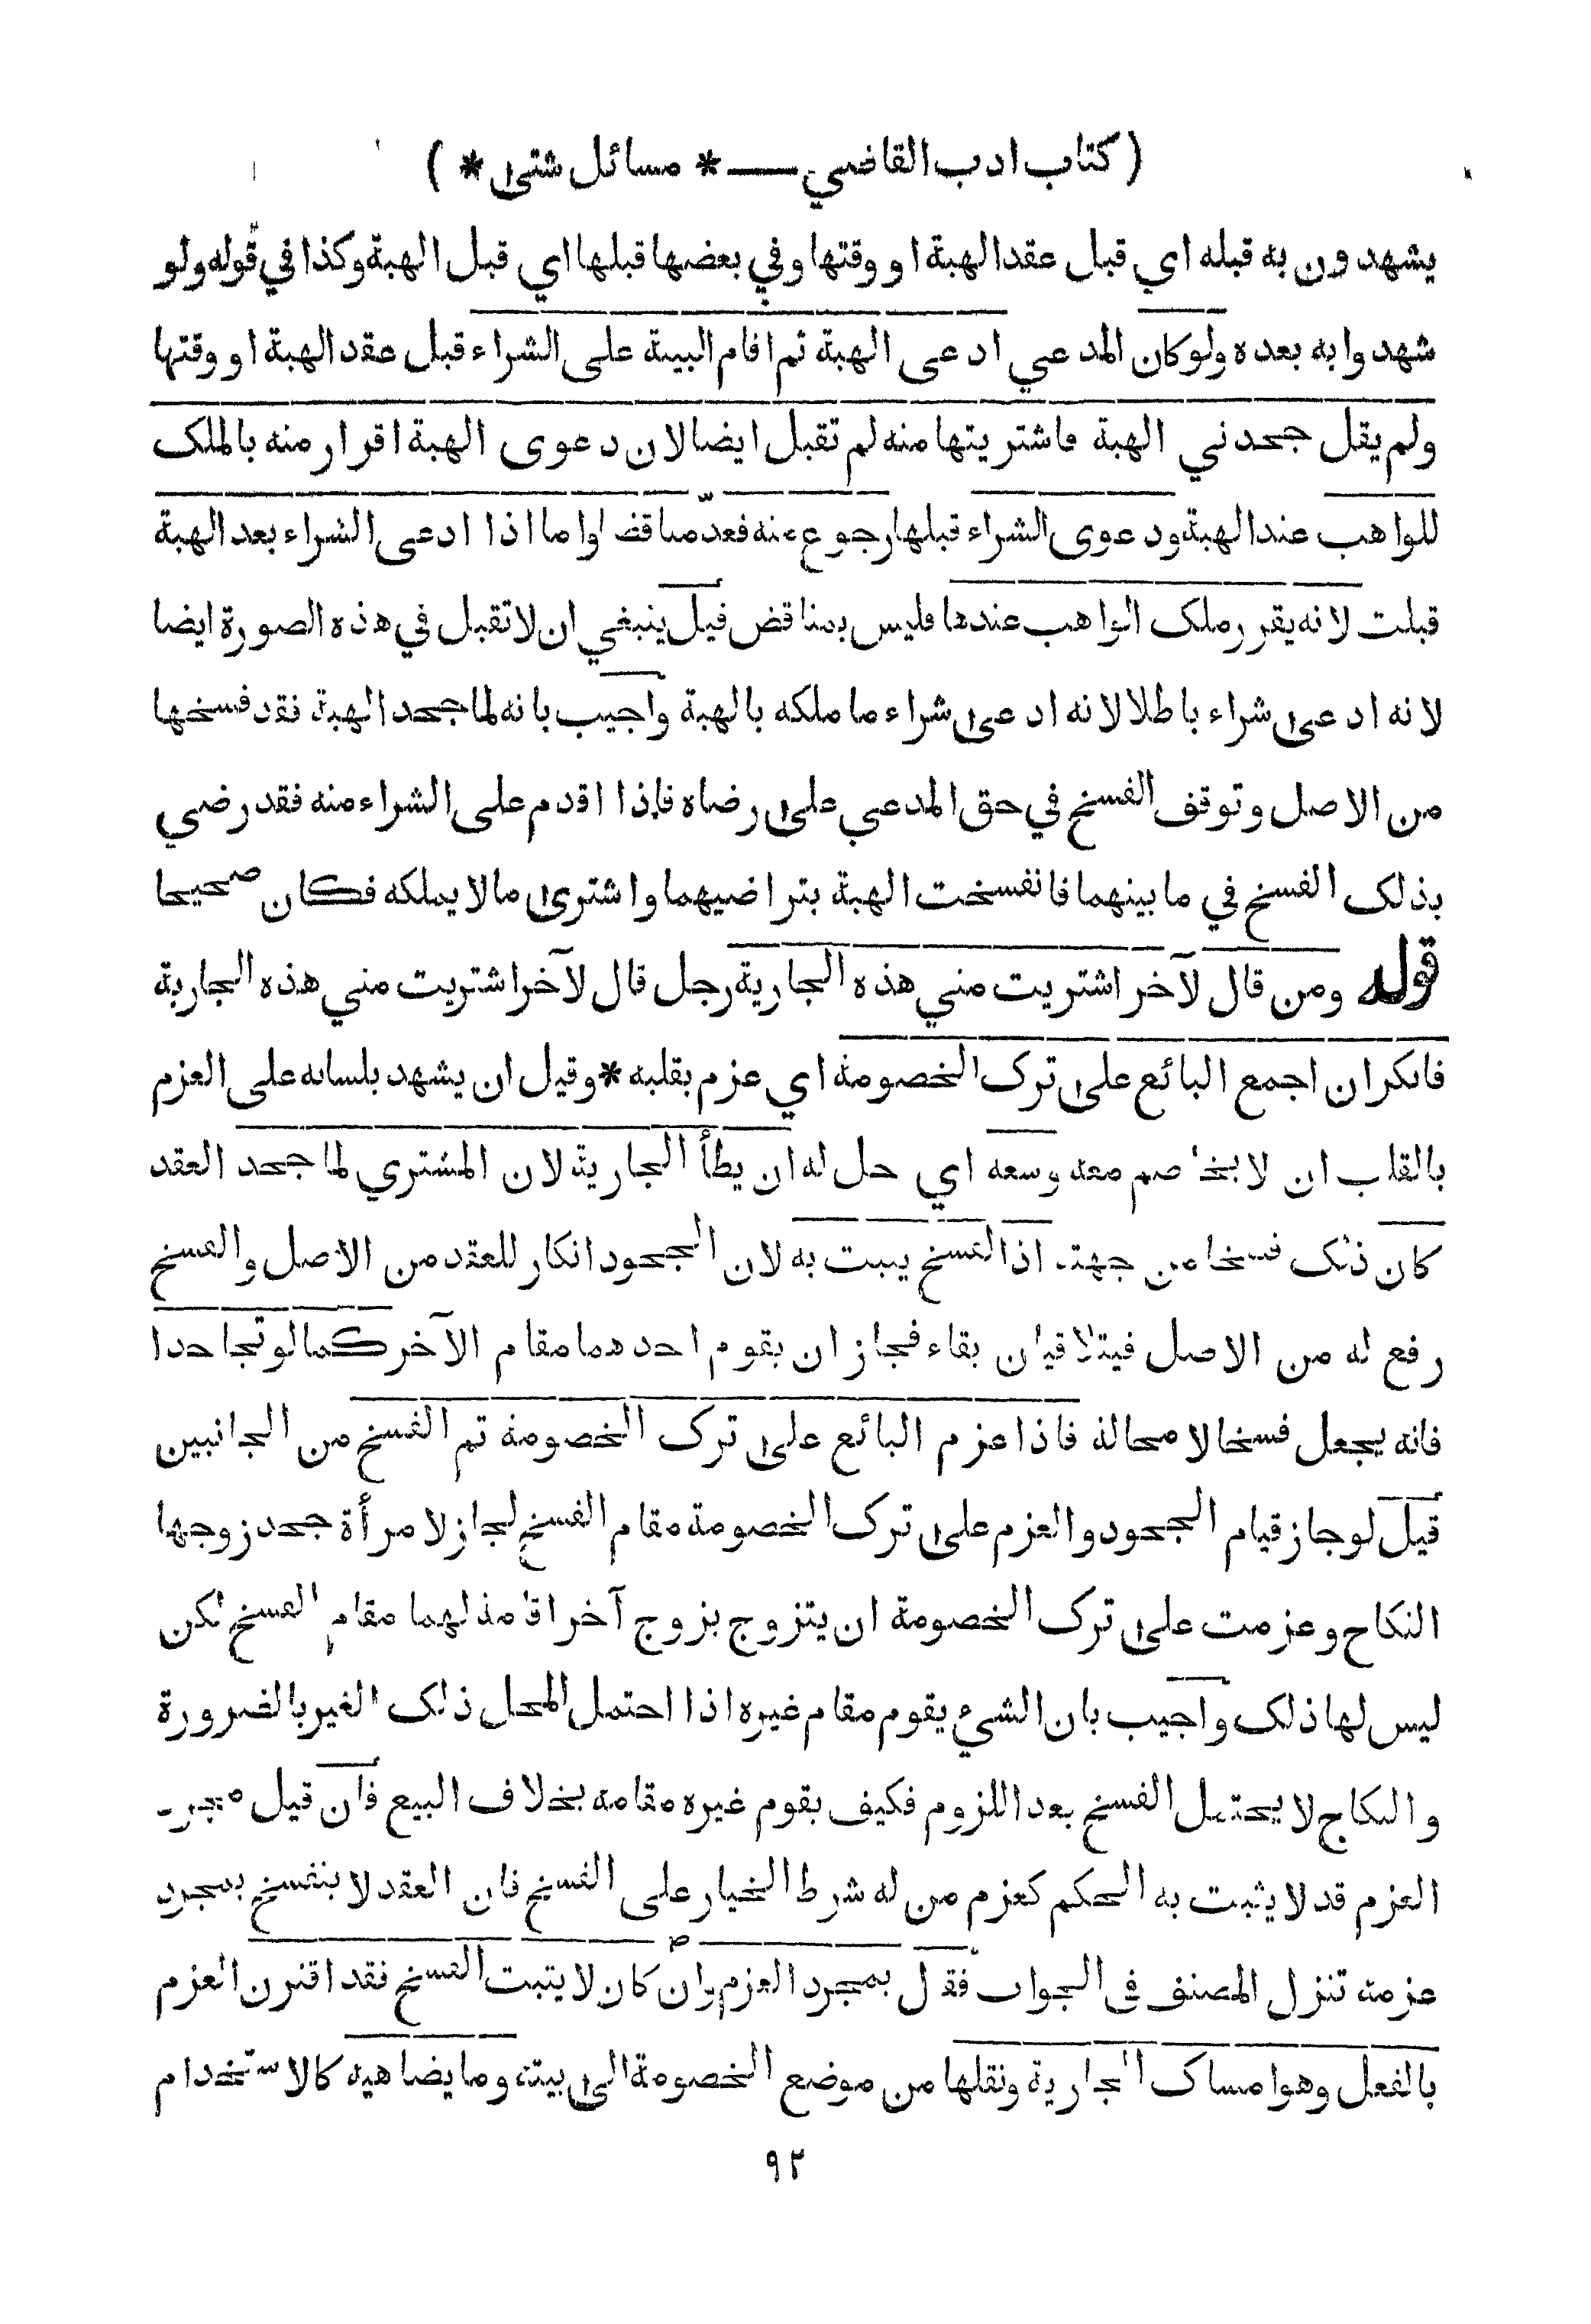 ( كتاب ادب القاضي — * مسائل شتى * )
يشهدون به قبله اي قبل عقد الهبة او وقتها وفي بعضها قبلها اي قبل الهبة وكذا في قوله ولو
شهدوا به بعده ولو كان المدعي ادعى الهبة ثم اقام البينة على الشراء قبل عقد الهبة او وقتها
ولم يقل جحدني الهبة فاشتريتها منه لم تقبل ايضا لان دعوى الهبة اقرار منه بالملك
للواهب عند الهبة ودعوى الشراء قبلها رجوع عنه فعدّ مناقضا واما اذا ادعى الشراء بعد الهبة
قبلت لانه يقرر ملك الواهب عندها فليس بمناقض قيل ينبغي ان لا تقبل في هذه الصورة ايضا
لانه ادعى شراء باطلا لانه ادعى شراء ما ملكه بالهبة واجيب بانه لما جحد الهبة فقد فسخها
من الاصل وتوقف الفسخ في حق المدعي على رضاه فاذا اقدم على الشراء منه فقد رضي
بذلك الفسخ في ما بينهما فانفسخت الهبة بتراضيهما واشترى ما لا يملكه فكان صحيحا
قوله ومن قال لآخر اشتريت مني هذه الجارية رجل قال لآخر اشتريت مني هذه الجارية
فانكر ان اجمع البائع على ترك الخصومة اي عزم بقلبه * وقيل ان يشهد بلسانه على العزم
بالقلب ان لا يخاصم معه وسعه اي حل له ان يطأ الجارية لان المشتري لما جحد العقد
كان ذلك فسخا من جهته اذ الفسخ يثبت به لان الجحود انكار للعقد من الاصل والفسخ
رفع له من الاصل فيتلاقيان بقاء فجاز ان يقوم احدهما مقام الآخر كما لو تجاحدا
فانه يجعل فسخا لا محالة فاذا عزم البائع على ترك الخصومة تم الفسخ من الجانبين
قيل لو جاز قيام الجحود والعزم على ترك الخصومة مقام الفسخ لجاز لامرأة جحد زوجها
النكاح وعزمت على ترك الخصومة ان يتزوج بزوج آخر اقامة لهما مقام الفسخ لكن
ليس لها ذلك واجيب بان الشيء يقوم مقام غيره اذا احتمل المحل ذلك الغير بالضرورة
والنكاح لا يحتمل الفسخ بعد اللزوم فكيف يقوم غيره مقامه بخلاف البيع فان قيل مجرد
العزم قد لا يثبت به الحكم كعزم من له شرط الخيار على الفسخ فان العقد لا ينفسخ بمجرد
عزمه تنزل المصنف في الجواب فقال بمجرد العزم وان كان لا يثبت الفسخ فقد اقترن العزم
بالفعل وهو امساك الجارية ونقلها من موضع الخصومة الى بيته وما يضاهيه كالاستخدام
٩٢